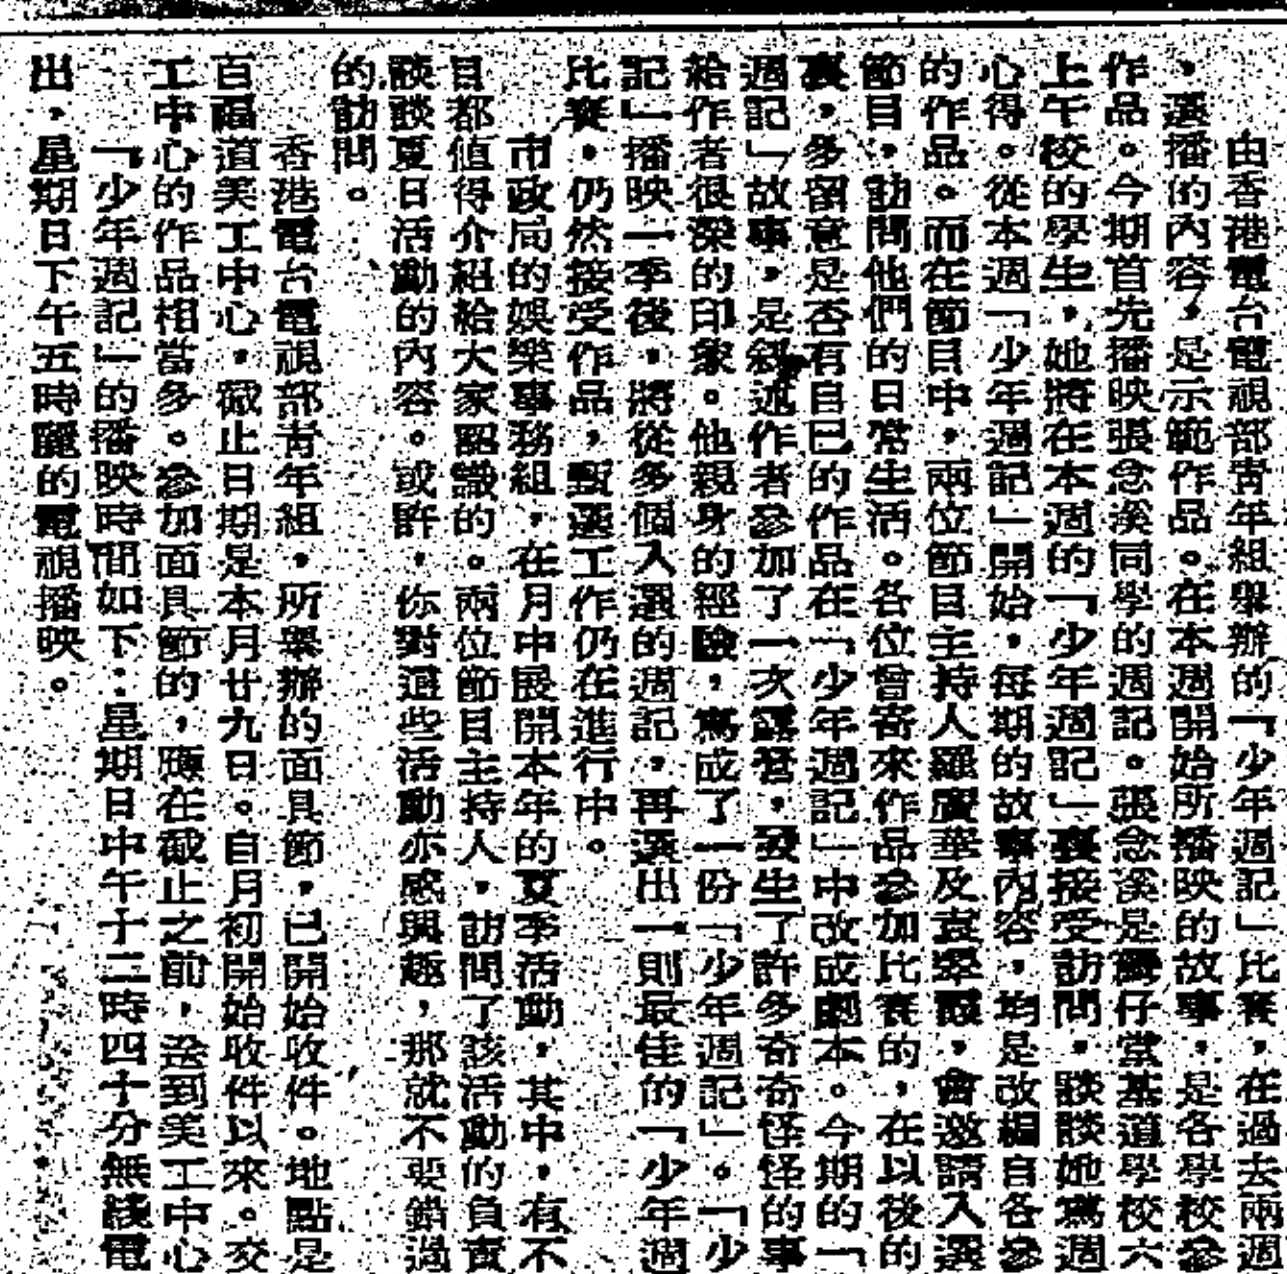 由香港電台電視部青年組舉辦的「少年週記」比賽，在過去兩週
，選播的內容，是示範作品。在本週開始所播映的故事，是各學校參
作品。今期首先播映張念溪同學的週記。張念溪是灣仔堂基道學校六
上午校的學生，她將在本週的「少年週記」裏接受訪問，談談她寫週
心得。從本週「少年週記」開始，每期的故事內容，均是改編自各參
的作品。而在節目中，兩位節目主持人羅廣華及袁翠霞，會邀請入選
節目，訪問他們的日常生活。各位曾寄來作品參加比賽的，在以後的
裏，多留意是否有自己的作品在「少年週記」中改成劇本。今期的「
週記」故事，是敍述作者參加了一次露營，發生了許多奇奇怪怪的事
給作者很深的印象。他親身的經驗，寫成了一份「少年週記」。「少
記」播映一季後，將從多個入選的週記，再選出一則最佳的「少年週
比賽，仍然接受作品，甄選工作仍在進行中。
市政局的娛樂事務組，在月中展開本年的夏季活動，其中，有不
目都值得介紹給大家認識的。兩位節目主持人，訪問了該活動的負責
談談夏日活動的內容。或許，你對這些活動亦感興趣，那就不要錯過
的訪問。
香港電台電視部青年組，所舉辦的面具節，已開始收件。地點是
百福道美工中心，截止日期是本月廿九日。自月初開始收件以來。交
工中心的作品相當多。參加面具節的，應在截止之前，送到美工中心
「少年週記」的播映時間如下：星期日中午十二時四十分無綫電
出，星期日下午五時麗的電視播映。